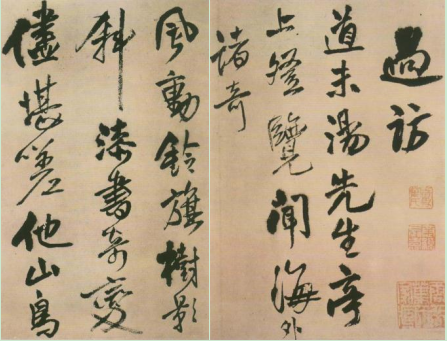 過訪
道未湯先生亭
上登覽聞海外
諸奇
風動鈴旗樹影
斜漆書奇變
儘堪嗟他山鳥